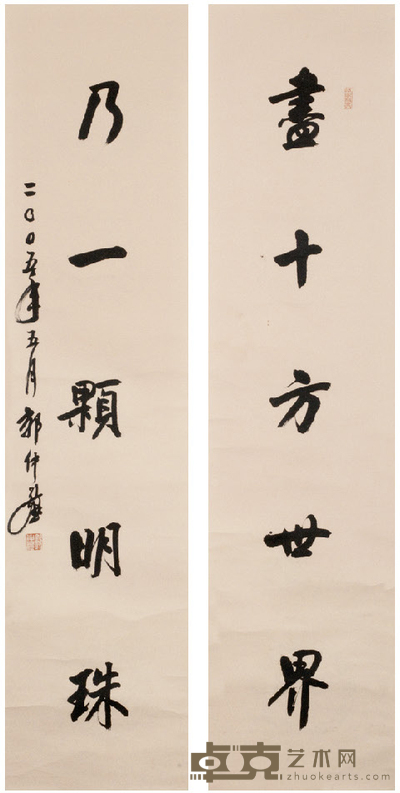 盡十方世界
乃一顆明珠
二〇〇五年五月郭仲選
卓克艺术网
zhuokearts.com